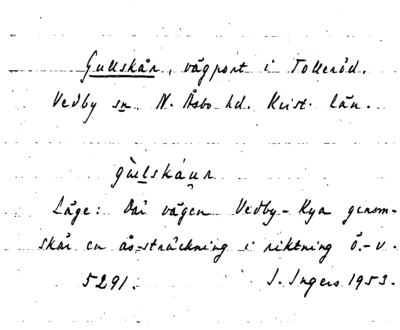 Gullskår, vägport i Tolleröd.
Vedby sn N. Åsbo hd. Krist. län.
gùlskáur
Läge: Där vägen Vedby-Kya genom-
skär en ås-sträckning i riktning Ö.-V.
5291. I. Ingers 1953.